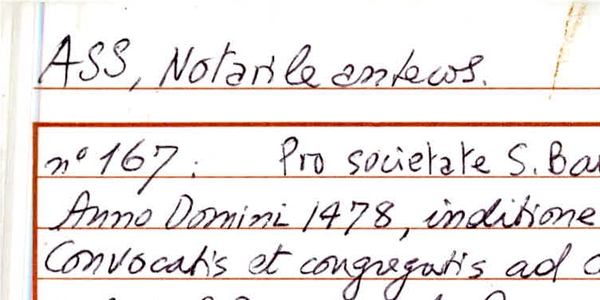 ASS, Notarile antecos.
n° 167. Pro societate S. Ba
Anno Domini 1478, inditione
Convocatis et congregatis ad